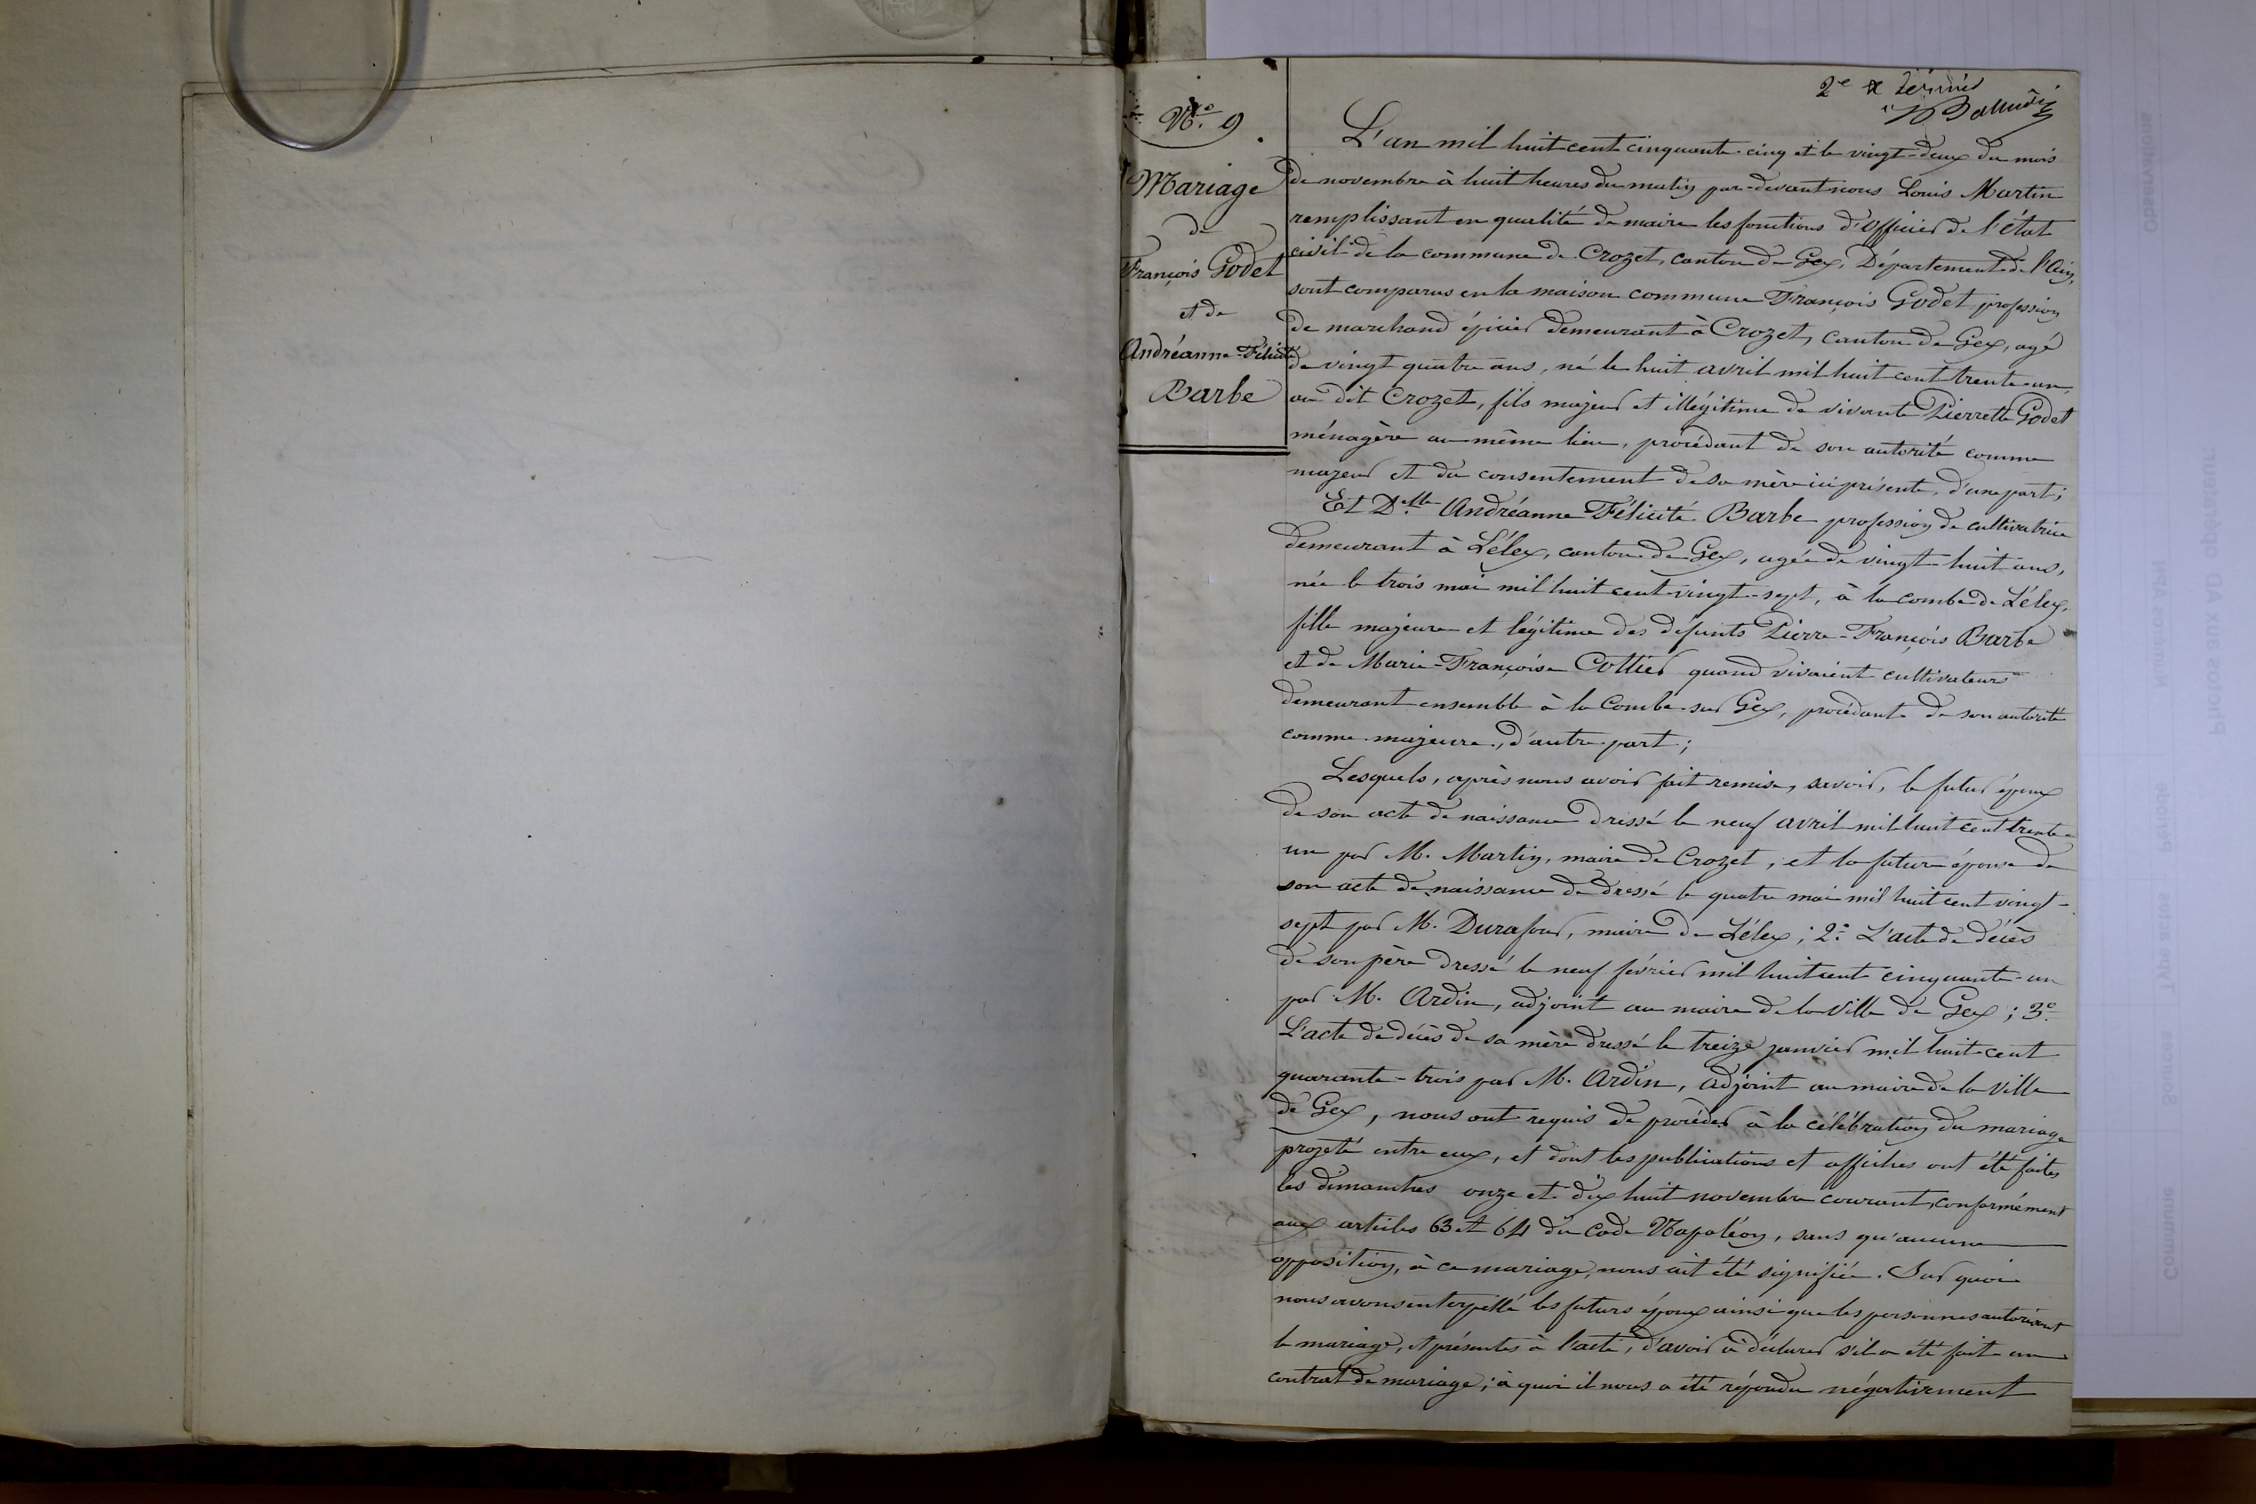 N.° 9
Mariage
de
François Godet
et de
Andréanne-Félicité
Barbe
2e et dernier
L'an mil huit cent cinquante-cinq et le vingt-deux du mois
de novembre à huit heures du matin par-devant nous Louis Martin
remplissant en qualité de maire les fonctions d'officier de l'état
civil de la commune de Crozet, canton de Gex, Département de l'Ain,
sont comparus en la maison commune François Godet profession
de marchand épicier demeurant à Crozet, canton de Gex, agé
de vingt quatre ans, né le huit avril mil huit cent trente-un,
au dit Crozet, fils majeur et illégitime de vivante Pierrette Godet
ménagère au même lieu, procédant de son autorité comme
majeur et du consentement de sa mère ici présente, d'une part;
Et D.lle Andréanne Félicité Barbe profession de cultivatrice
demeurant à Lélex, canton de Gex, agée de vingt-huit ans,
née le trois mai mil huit cent vingt-sept, à la combe de Lélex,
fille majeure et légitime des défunts Pierre-François Barbe
et de Marie-Françoise Collier quand vivaient cultivateurs
demeurant ensemble à la Combe sur Gex, procédant de son autorité
comme majeure, d'autre part;
Lesquels, après nous avoir fait remise, savoir, le futur époux
de son acte de naissance dressé le neuf avril mil huit cent trente-
un par M. Martin, maire de Crozet, et la future épouse de
son acte de naissance de dressé le quatre mai mil huit cent vingt-
sept par M. Durafour, maire de Lélex; 2.° L'acte de décès
de son père dressé le neuf février mil huit cent cinquante-un
par M. Ardin, adjoint au maire de la ville de Gex; 3.°
L'acte de décès de sa mère dressé le treize janvier mil huit cent
quarante-trois par M. Ardin, adjoint au maire de la ville
de Gex, nous ont requis de procéder à la célébration du mariage
projeté entre eux, et dont les publications et affiches ont été faites
les dimanches onze et dix huit novembre courant, conformément
aux articles 63 et 64 du code Napoléon, sans qu'aucune
opposition, à ce mariage, nous ait été signifiée. Sur quoi
nous avons interpellé les futurs époux ainsi que les personnes autorisant
le mariage, et présentes à l'acte, d'avoir à déclarer s'il a été fait un
contrat de mariage; à quoi il nous a été répondu négativement